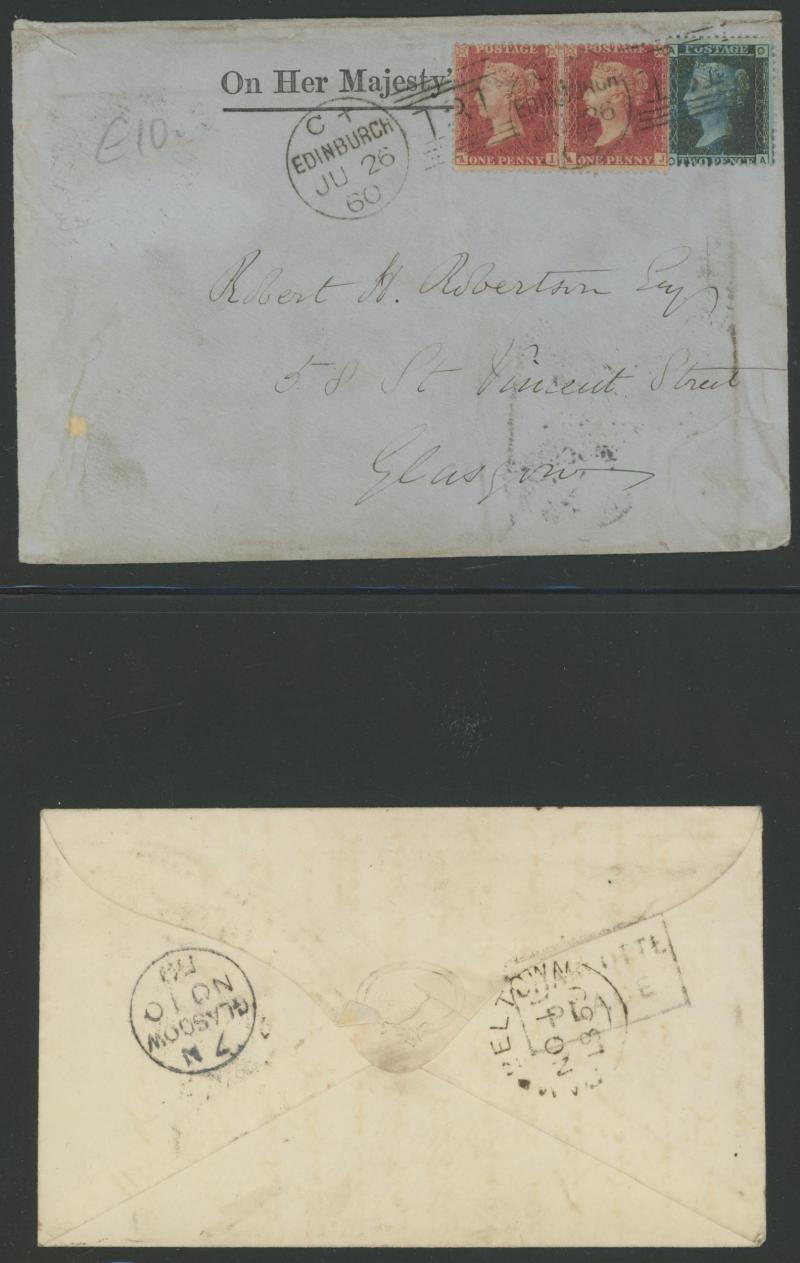 On Her Majesty'
£10
C +
EDINBURGH
JU 26
60
131
EDINBURGH
POSTAGE
A I
ONE PENNY
POSTAGE
A J
ONE PENNY
A POSTAGE O
O TWO PENCE A
Robert H. Robertson Esq
58 St Vincent Street
Glasgow
7 N
GLASGOW
NO 10
59
CAMPBELTOWN
NO 10
1859